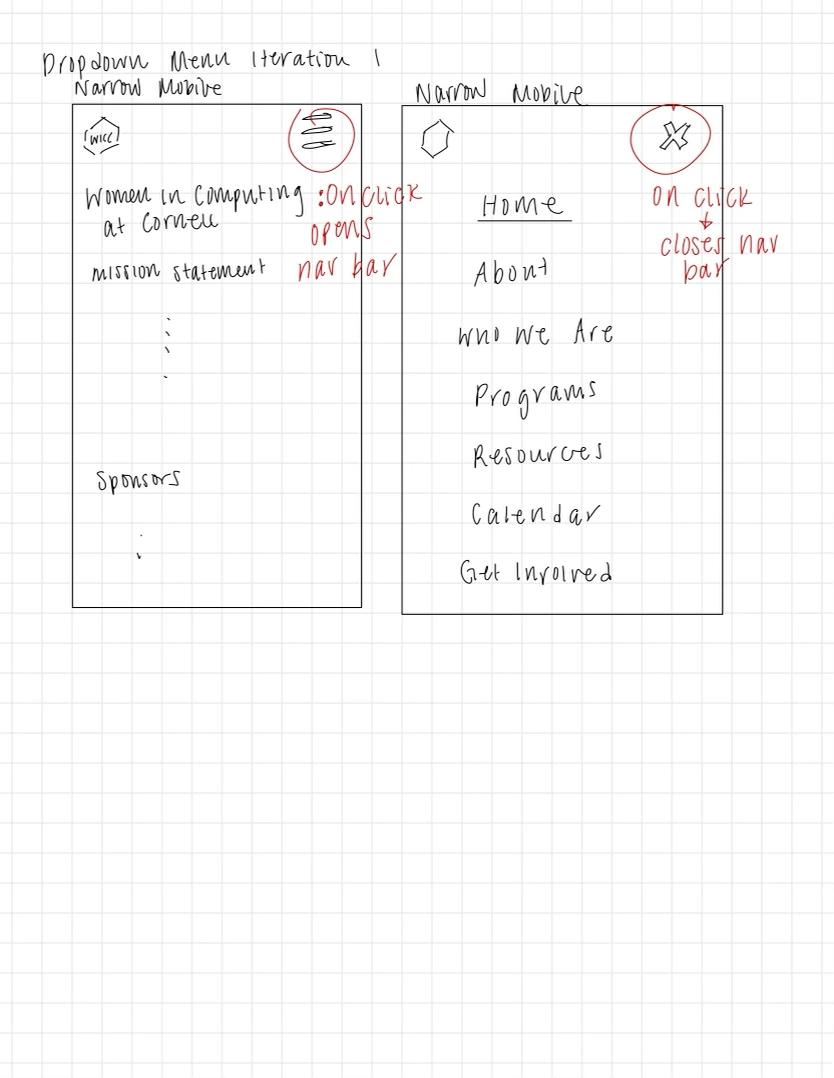 Dropdown Menu Iteration 1
Narrow Mobile
WICC
Women in Computing
at Cornell
mission statement
: On click
opens
nav bar
Sponsors
Narrow Mobile
Home
About
Who We Are
Programs
Resources
Calendar
Get Involved
on click
closes nav
bar